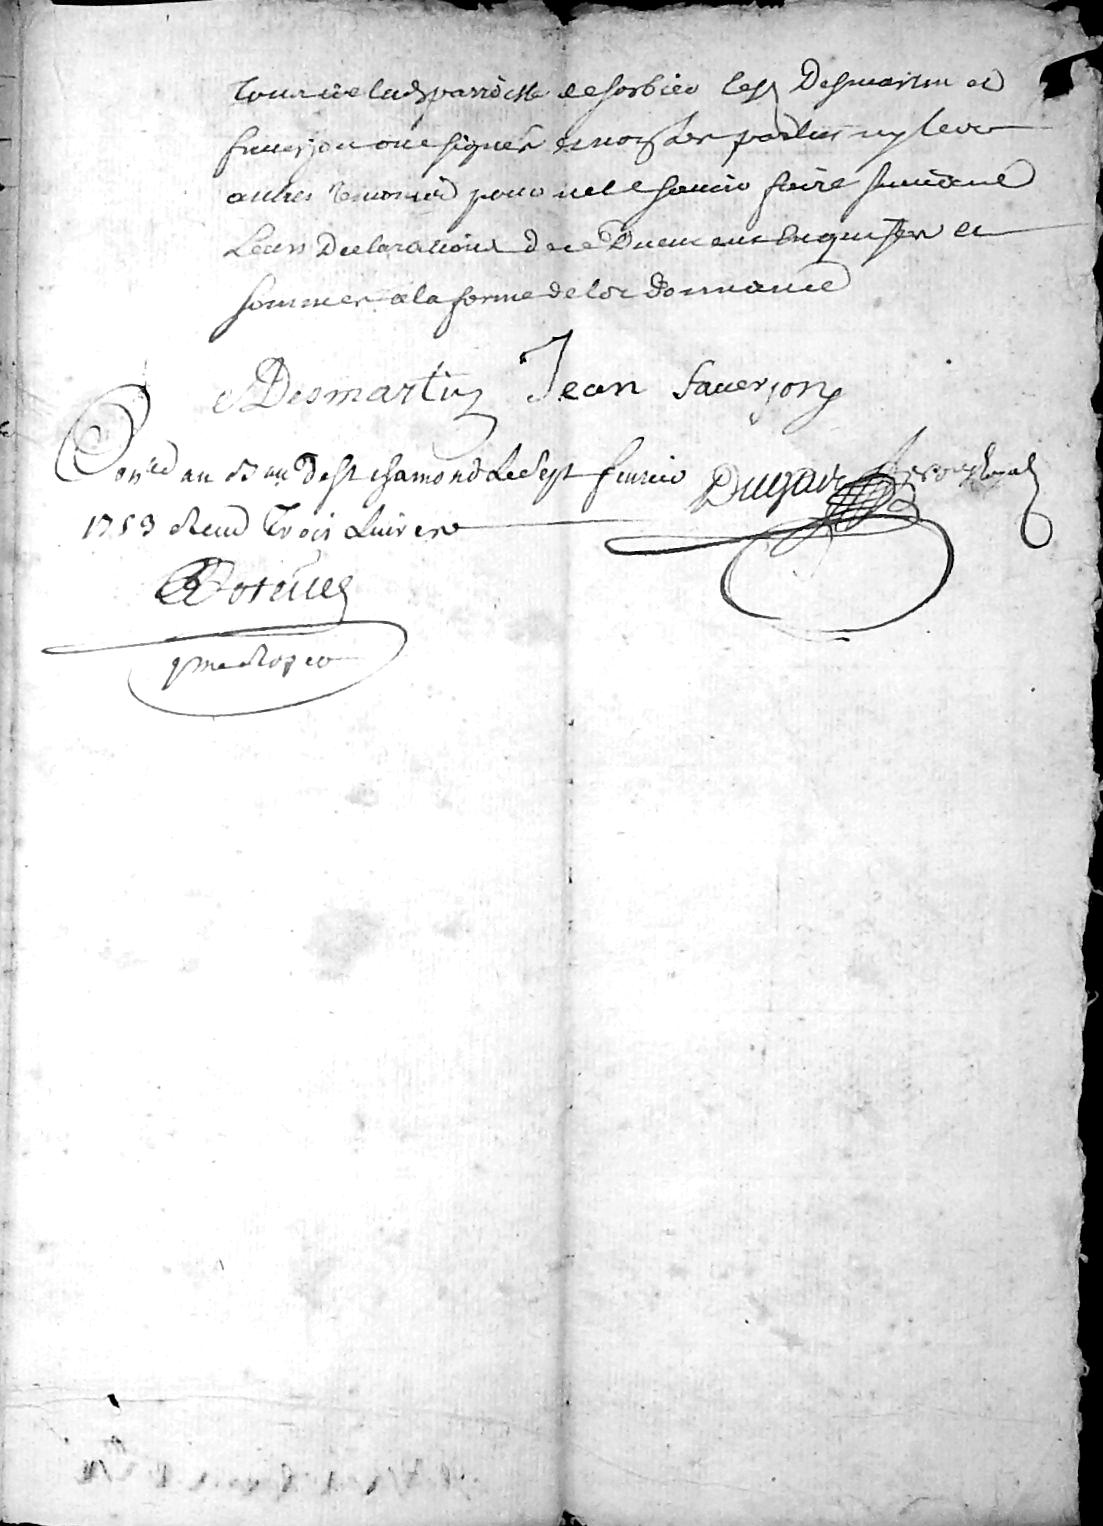 tous de lad parroisse de sorbier lesd Desmartin et
faverjon ont signés et non les parties ny leur
autres temoins pour ne le scavoir faire suivant
Leurs Declarations de ce Duement Enquises et
sommer a la forme de lordonnance
Desmartin Jean faverjon
Con lé au B au De st chamond Le sept fevrier Dugas no royal
1753 Reçu Trois Livres